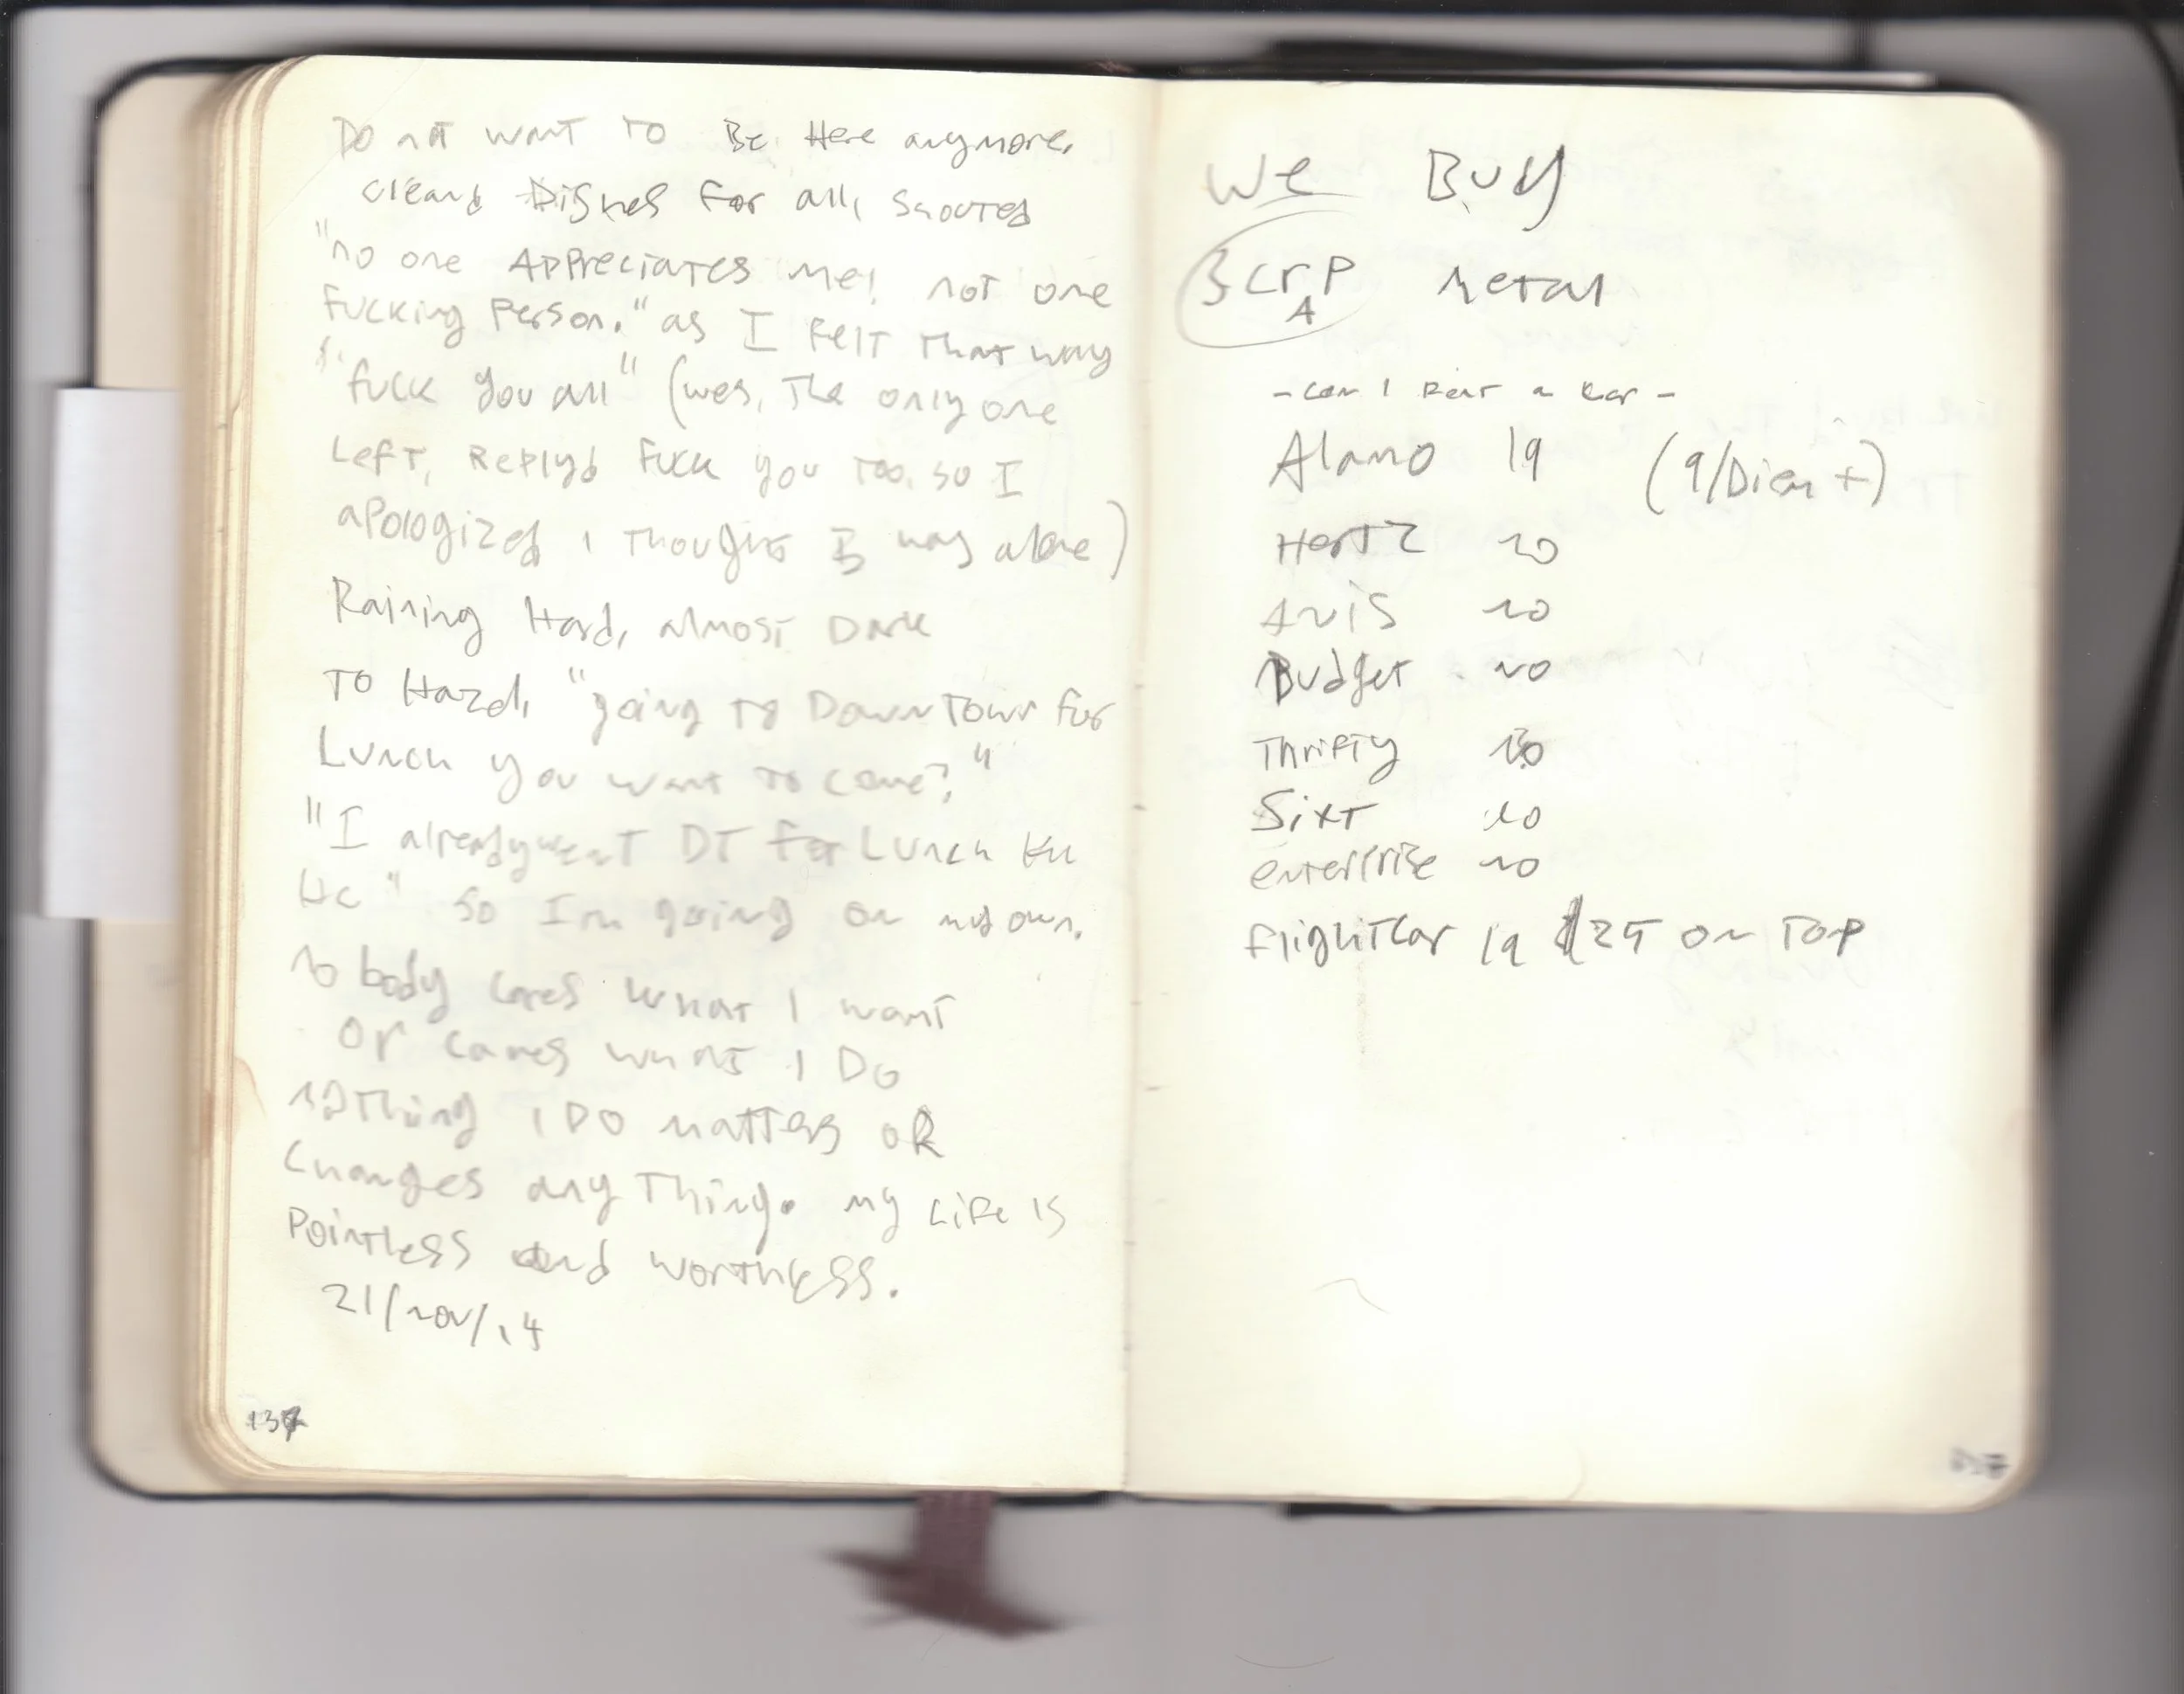 Do not want to Be Here anymore.
cleand Dishes for all, shouted
"no one Appreciates me! not one
fucking Person." as I felt that way
"fuck you all" (wes, The only one
Left, Replyd fuck you too, so I
apologized, I thought I was alone)
Raining Hard, almost Dark
To Hazel, "going to Down Town for
Lunch you want to come?"
"I already went DT for Lunch
" so Im going on my own.
no body cares what I want
or cares what I Do
nothing I Do matters oR
Changes any Thing. my Life is
Pointless and worthless.
21/nov/14
137
We Buy
ScrAP metal
- can I Rent a car -
Alamo 19 (9/Diem +)
Hertz 20
Avis no
Budget no
Thrifty
Sixt no
enterprise no
flightcar 19 $25 on Top